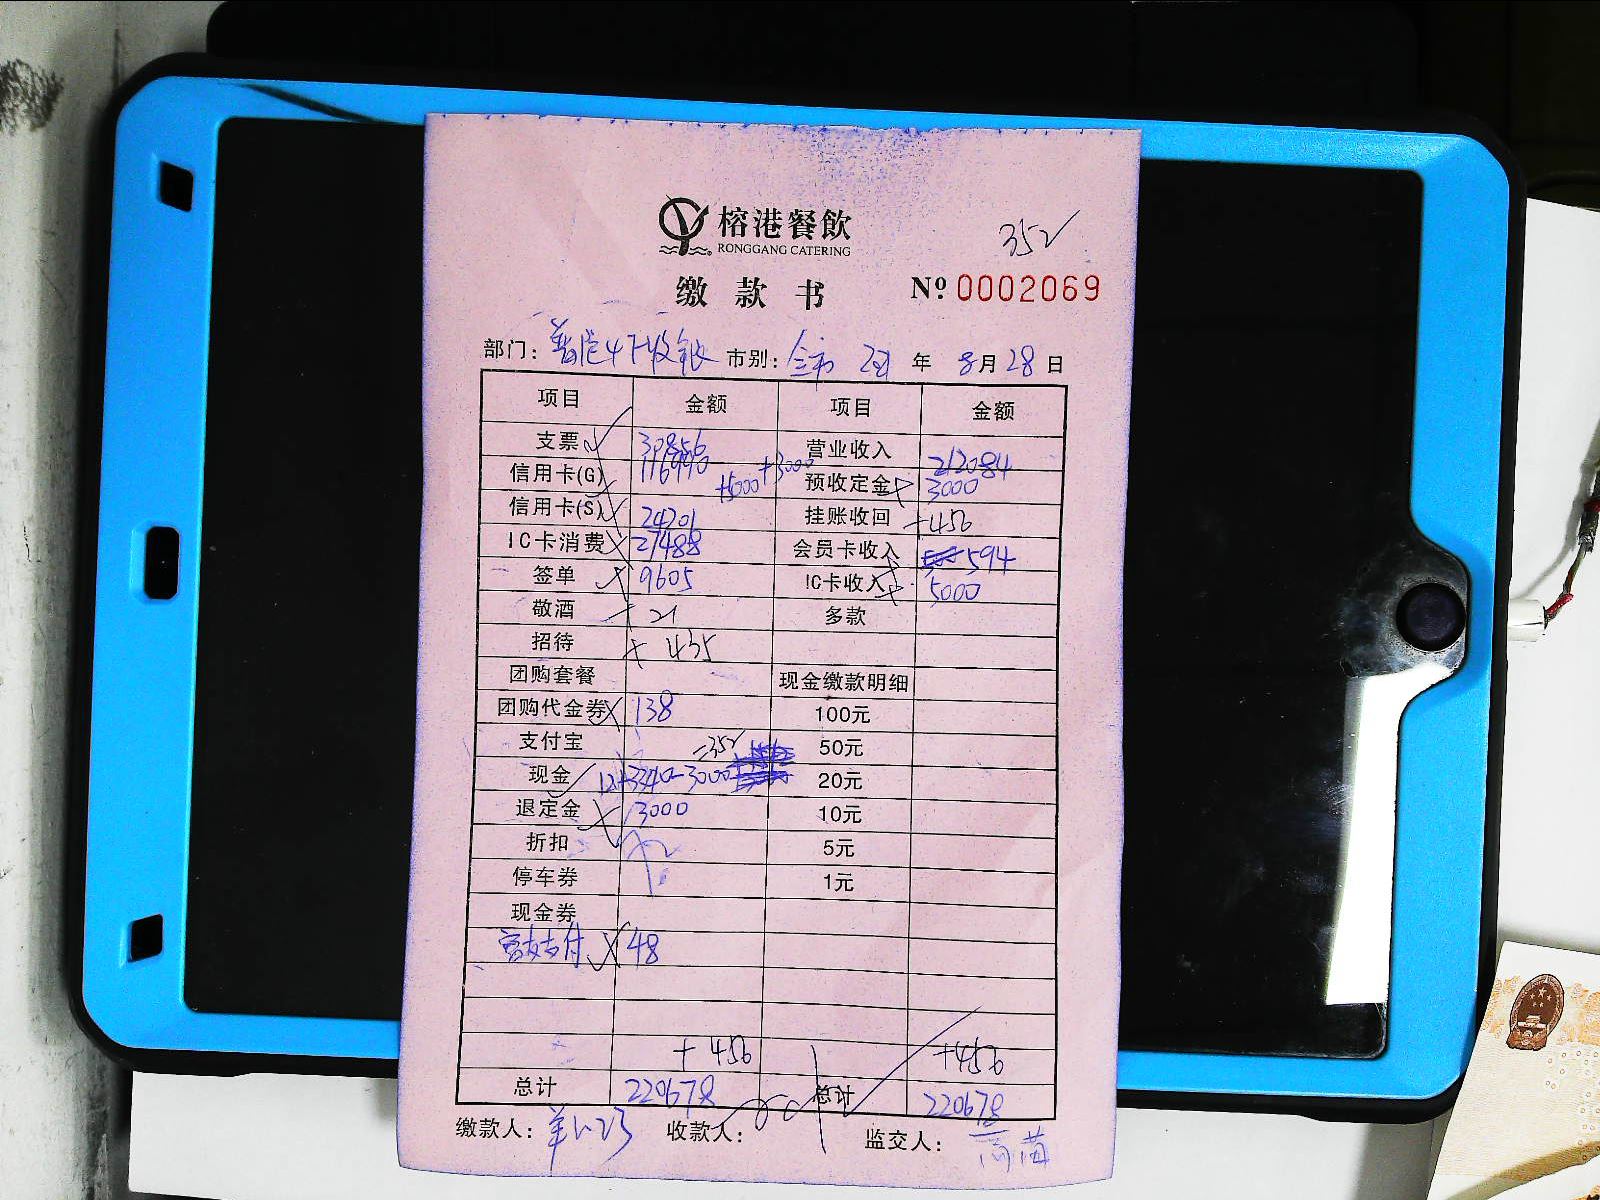 榕港餐飲
RONGGANG CATERING
352
缴款书 № 0002069
部门： 市别：全市 年 8月28日
项目 金额 项目 金额
支票 30856 营业收入 212084
信用卡(G) 116990 +5000 +3000 预收定金 3000
信用卡(S) 24201 挂账收回 456
IC卡消费 27488 会员卡收入 594
签单 9605 IC卡收入 5000
敬酒 21 多款
招待 435
团购套餐 现金缴款明细
团购代金券 138 100元
支付宝 =352 50元
现金 12+3340-3000 20元
退定金 3000 10元
折扣 5元
停车券 1元
现金券
支付 48
+456 +456
总计 220678 总计 220678
缴款人： 收款人： 监交人：